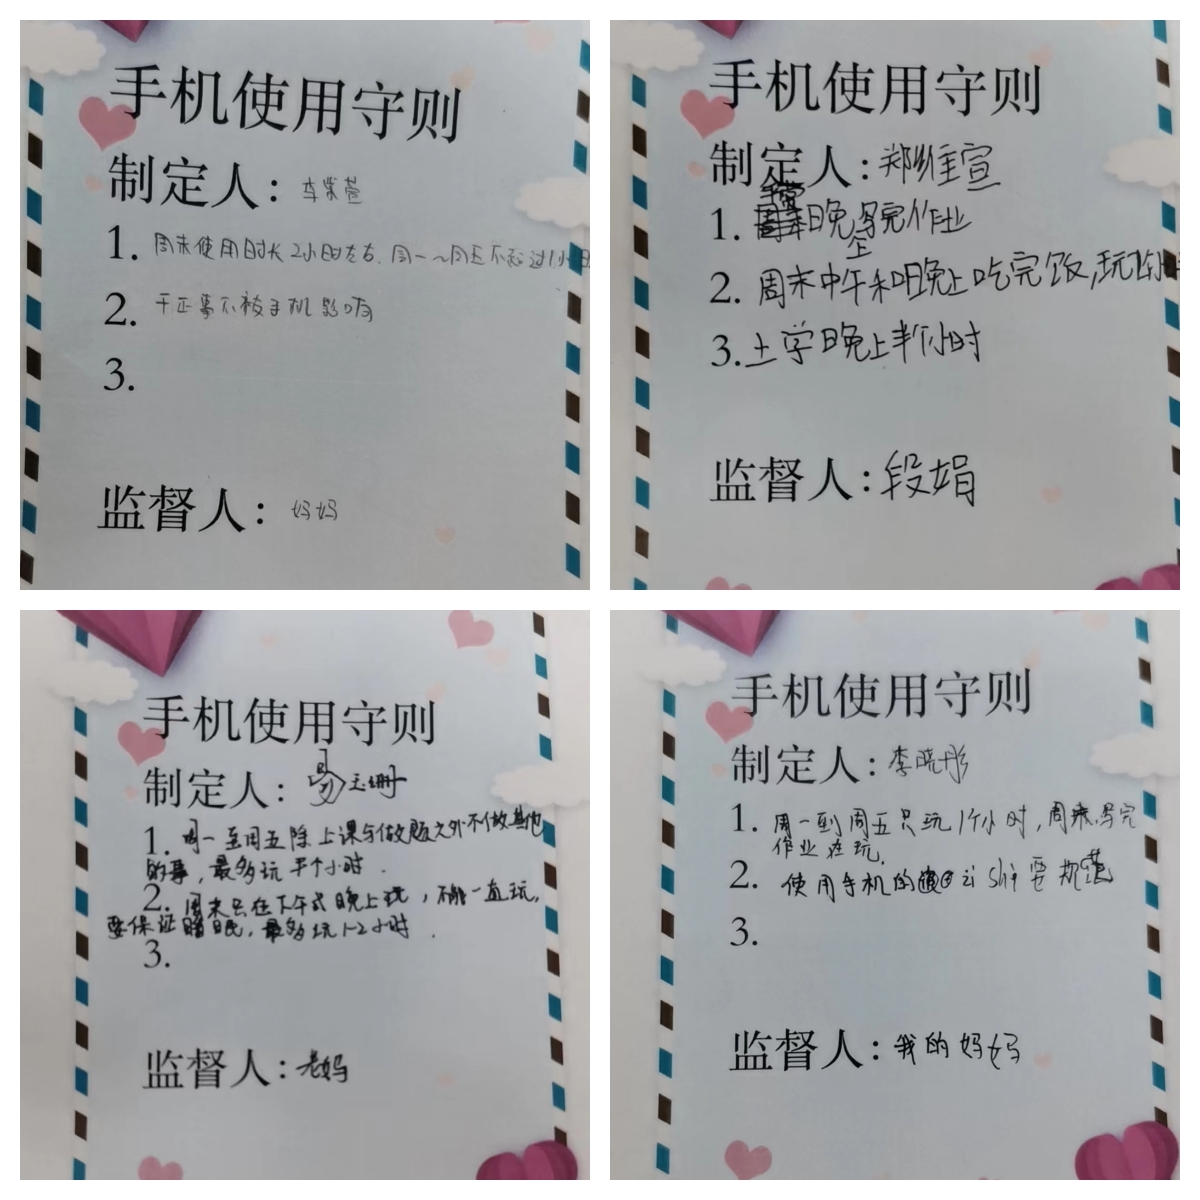 手机使用守则
制定人：李紫萱
1. 周末使用时长2小时左右.周一~周五不超过1小时
2. 干正事不被手机影响
3.
监督人：妈妈
手机使用守则
制定人：郑维宣
1. 日晚写完作业
2. 周末中午和晚上吃完饭,玩
3. 上学晚上半个小时
监督人：段娟
手机使用守则
制定人：易玉珊
1. 周一至周五除上课与做题之外不做其他
的事，最多玩半个小时.
2. 周末只在下午或晚上玩，不能一直玩,
要保证睡眠，最多玩1-2小时.
3.
监督人：老妈
手机使用守则
制定人：李晓彤
1. 周一到周五只玩1个小时，周末写完
作业在玩.
2. 使用手机的 zi shi 要规范
3.
监督人：我的妈妈